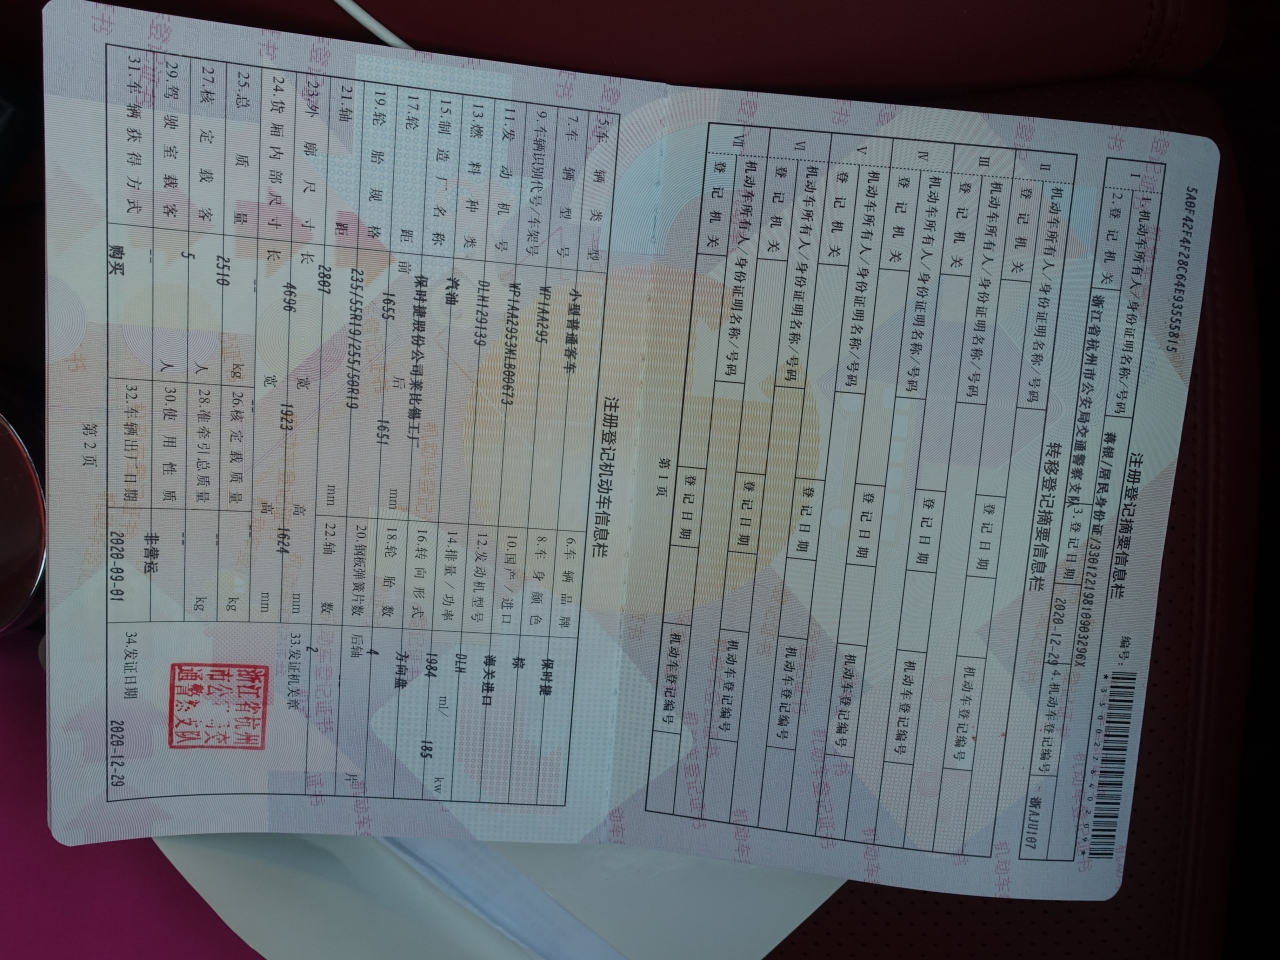 5A0F42F4F28C64E93555815
注册登记摘要信息栏
编号:
*330027640209*
I 1.机动车所有人/身份证明名称/号码 蒋银/居民身份证/33012219810903296X
2.登记机关 浙江省杭州市公安局交通警察支队 3.登记日期 2020-12-29 4.机动车登记编号 浙AJU107
转移登记摘要信息栏
II 机动车所有人/身份证明名称/号码
登记机关 登记日期 机动车登记编号
III 机动车所有人/身份证明名称/号码
登记机关 登记日期 机动车登记编号
IV 机动车所有人/身份证明名称/号码
登记机关 登记日期 机动车登记编号
V 机动车所有人/身份证明名称/号码
登记机关 登记日期 机动车登记编号
VI 机动车所有人/身份证明名称/号码
登记机关 登记日期 机动车登记编号
VII 机动车所有人/身份证明名称/号码
登记机关 登记日期 机动车登记编号
第1页
注册登记机动车信息栏
5.车辆类型 小型普通客车 6.车辆品牌 保时捷
7.车辆型号 WP1AA295 8.车身颜色 棕
9.车辆识别代号/车架号 WP1AA2953MLB00673 10.国产/进口 海关进口
11.发动机号 DLH129139 12.发动机型号 DLH
13.燃料种类 汽油 14.排量/功率 1984 ml/ 185 kw
15.制造厂名称 保时捷股份公司莱比锡工厂 16.转向形式 方向盘
17.轮距 前 1655 后 1651 mm 18.轮胎数 4
19.轮胎规格 235/55R19/255/50R19 20.钢板弹簧片数 后轴 片
21.轴距 2807 mm 22.轴数 2
23.外廓尺寸 长 4696 宽 1923 高 1624 mm 33.发证机关章
24.货厢内部尺寸 长 -- 宽 -- 高 -- mm
25.总质量 2510 kg 26.核定载质量 -- kg
27.核定载客 5 人 28.准牵引总质量 -- kg
29.驾驶室载客 -- 人 30.使用性质 非营运
31.车辆获得方式 购买 32.车辆出厂日期 2020-09-01 34.发证日期 2020-12-29
第2页